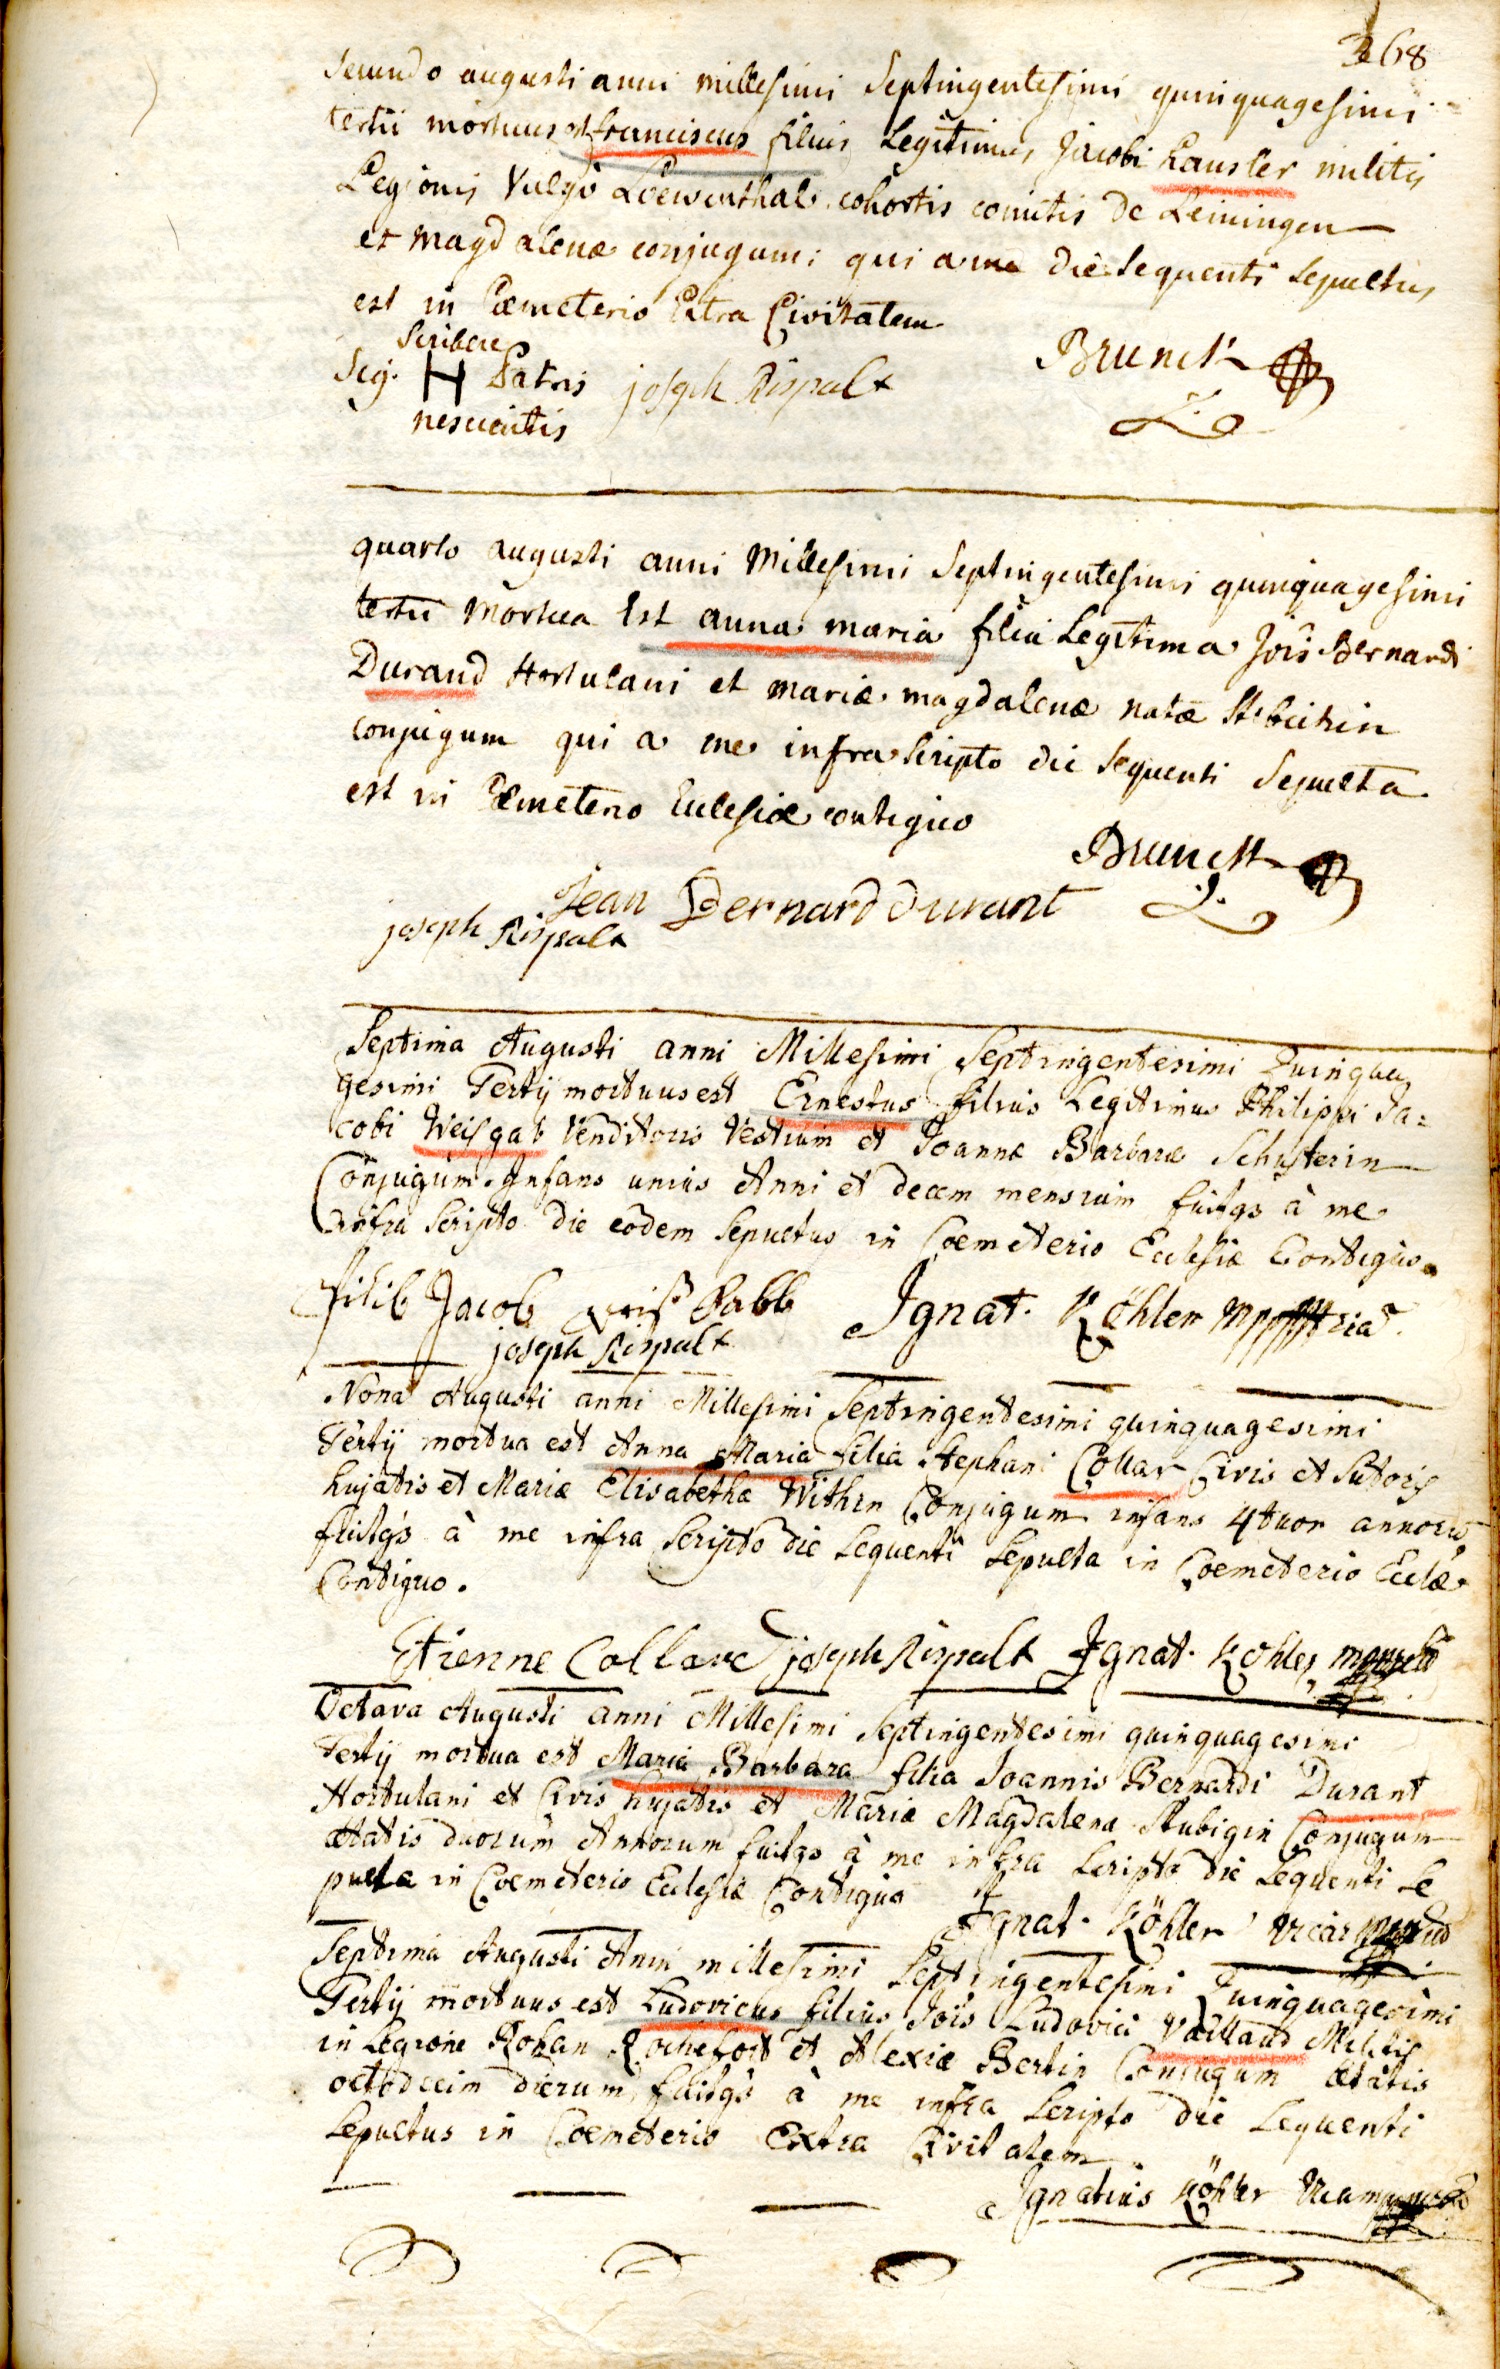 368
secundo augusti anni millesimi Septingentesimi quinquagesimi
tertii mortuus est franciscus filius Legitimus Jacobi Hausler militis
Legionis Vulgo Loewenthal cohortis comitis de Leiningen
et magdalenæ conjugum: qui a me die sequenti sepultus
est in Cæmeterio Extra Civitatem
Scribere
Sig. H Patris joseph Rispalt Brunck
nescientis
quarto augusti anni Millesimi Septingentesimi quinquagesimi
tertii Mortua Est anna maria filia Legitima Jois Bernardi
Durand Hortulani et mariæ magdalenæ natæ
conjugum qui a me infra scripto die sequenti Sepulta
est in Cæmeterio Ecclesiæ contiguo
Brunck
Jean Bernard Durant
joseph Rispalt
Septima Augusti anni Millesimi Septringentesimi Quinqua
gesimi Tertij mortuus est Ernestus filius Legitimus Philippi Ja=
cobi Weisgab Venditoris Vestium et Joannæ Barbaræ Schusterin
Conjugum. Infans unius Anni et decem mensium fuitqs à me
infra Scripto die eodem Sepultus in Coemeterio Ecclesiæ Contiguo.
filib Jacob Ignat. Köhler
joseph Rispalt
Nona Augusti anni Millesimi Septringentesimi quinquagesimi
Tertij mortua est Anna Maria filia Stephani Collar Civis et Sutoris
hujatis et Mariæ Elisabethæ Within Conjugum infans 4tuor annorũ
fuitqs à me infra Scripto die Sequenti Sepulta in Coemeterio Eccłæ
Contiguo.
Etienne Collard joseph Rispalt Ignat. Köhler
Octava Augusti anni Millesimi Septingentesimi quinquagesimi
Tertij mortua est Maria Barbara filia Joannis Bernardi Durant
Hortulani et Civis hujatis et Mariæ Magdalenæ Stubigin Conjugum
ætatis duorum Annorum fuitqs à me infra Scripto die Sequenti Se
pulta in Coemeterio Ecclesiæ Contiguo Ignat. Köhler vicar
Septima Augusti Anni millesimi Septingentesimi Quinquagesimi
Tertij mortuus est Ludovicus filius Jois Ludovici Vaillaud Militis
in Legione Rohan Rochefort et Alexiæ Bertin Conjugum ætatis
octodecim dierum fuitqs à me infra Scripto die Sequenti
Sepultus in Coemeterio Extra Civitatem.
Ignatius Köhler